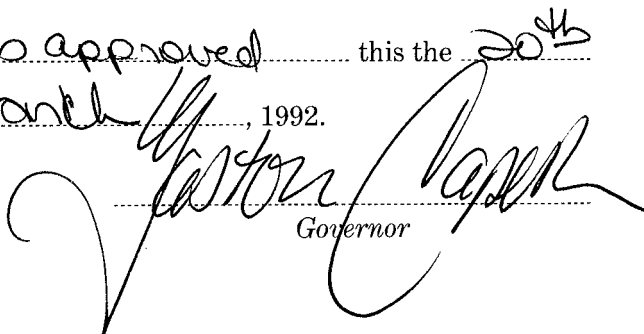 o approved this the 20th
arch, 1992.
Gaston Caperton
Governor